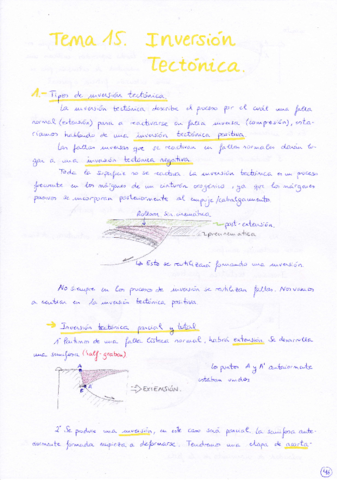 Tema 15. Inversión
Tectónica.
1.- Tipos de inversión tectónica.
La inversión tectónica describe el proceso por el cuál una falla
normal (extensión) pasa a reactivarse en falla inversa (compresión), esta-
ríamos hablando de una inversión tectónica positiva.
Las fallas inversas que se reactivan en fallas normales darán lu-
gar a una inversión tectónica negativa.
Toda la superficie no se reactiva. La inversión tectónica es un proceso
frecuente en los márgenes de un cinturón orogénico, ya que los márgenes
pasivos se incorporan posteriormente al empuje/cabalgamiento.
Relleno sin-cinemático
post-extensión
pre-cinemática
Esta se reutilizará formando una inversión
No siempre en los procesos de inversión se reutilizan fallas. Nos vamos
a centrar en la inversión tectónica positiva.
→ Inversión tectónica parcial y total
1º Partimos de una falla lístrica normal, habrá extensión. Se desarrolla
una semifosa (half-graben).
A
A'
⇒ EXTENSIÓN.
Los puntos A y A' anteriormente
estaban unidos
2º Se produce una inversión, en este caso será parcial. La semifosa ante-
riormente formada empieza a deformarse. Tendremos una etapa de acorta-